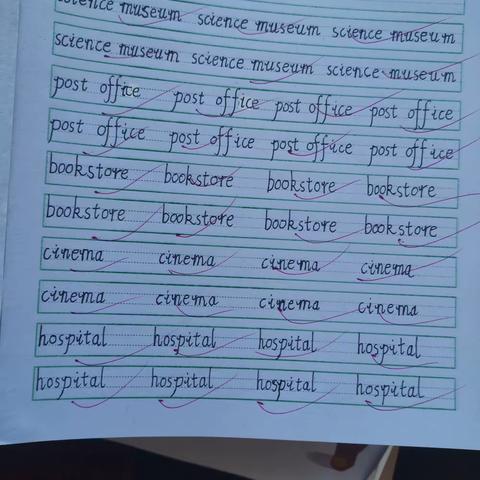 science museum science museum science museum
science museum science museum science museum
post office post office post office post office
post office post office post office post office
bookstore bookstore bookstore bookstore
bookstore bookstore bookstore bookstore
cinema cinema cinema cinema
cinema cinema cinema cinema
hospital hospital hospital hospital
hospital hospital hospital hospital